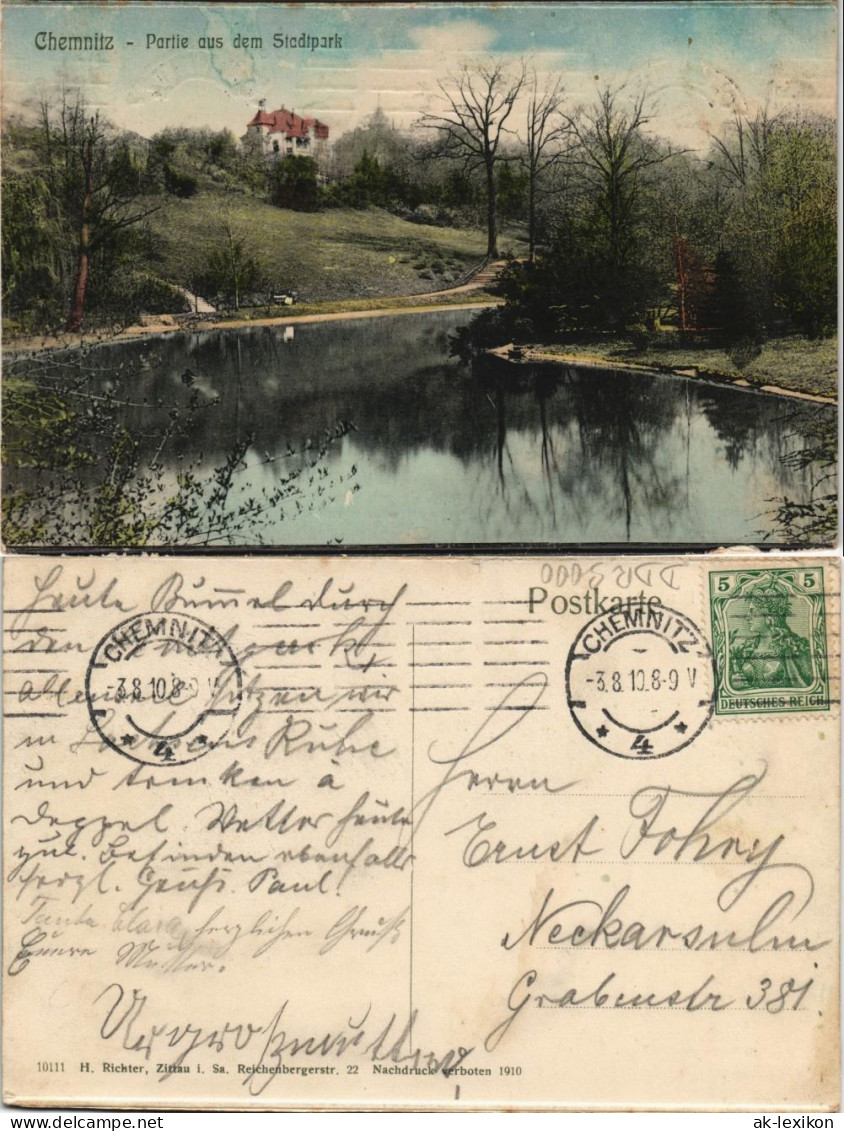 Chemnitz - Partie aus dem Stadtpark
DDR 9000
Postkarte
CHEMNITZ
-3.8.10.8-9 V
* 4 *
CHEMNITZ
-3.8.10.8-9 V
* 4 *
5 5
DEUTSCHES REICH
Heute Bummel durch
den
sitzen wir
in Ruhe
und trinken à
Deppel. Wetter heute
gut. Befinden ebenfalls
herzl. Gruß. Paul.
Tante Clara, herzlichen Gruß
Euere Mutter.
Urgroßmutter
Herrn
Ernst Fohry
Neckarsulm
Grabenstr 381.
10111 H. Richter, Zittau i. Sa. Reichenbergerstr. 22 Nachdruck verboten 1910
ak-lexikon